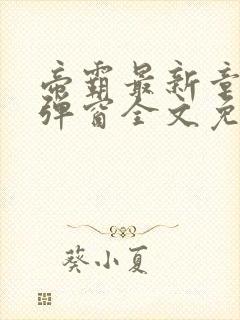 帝霸最新章
弹窗全文免
葵小夏